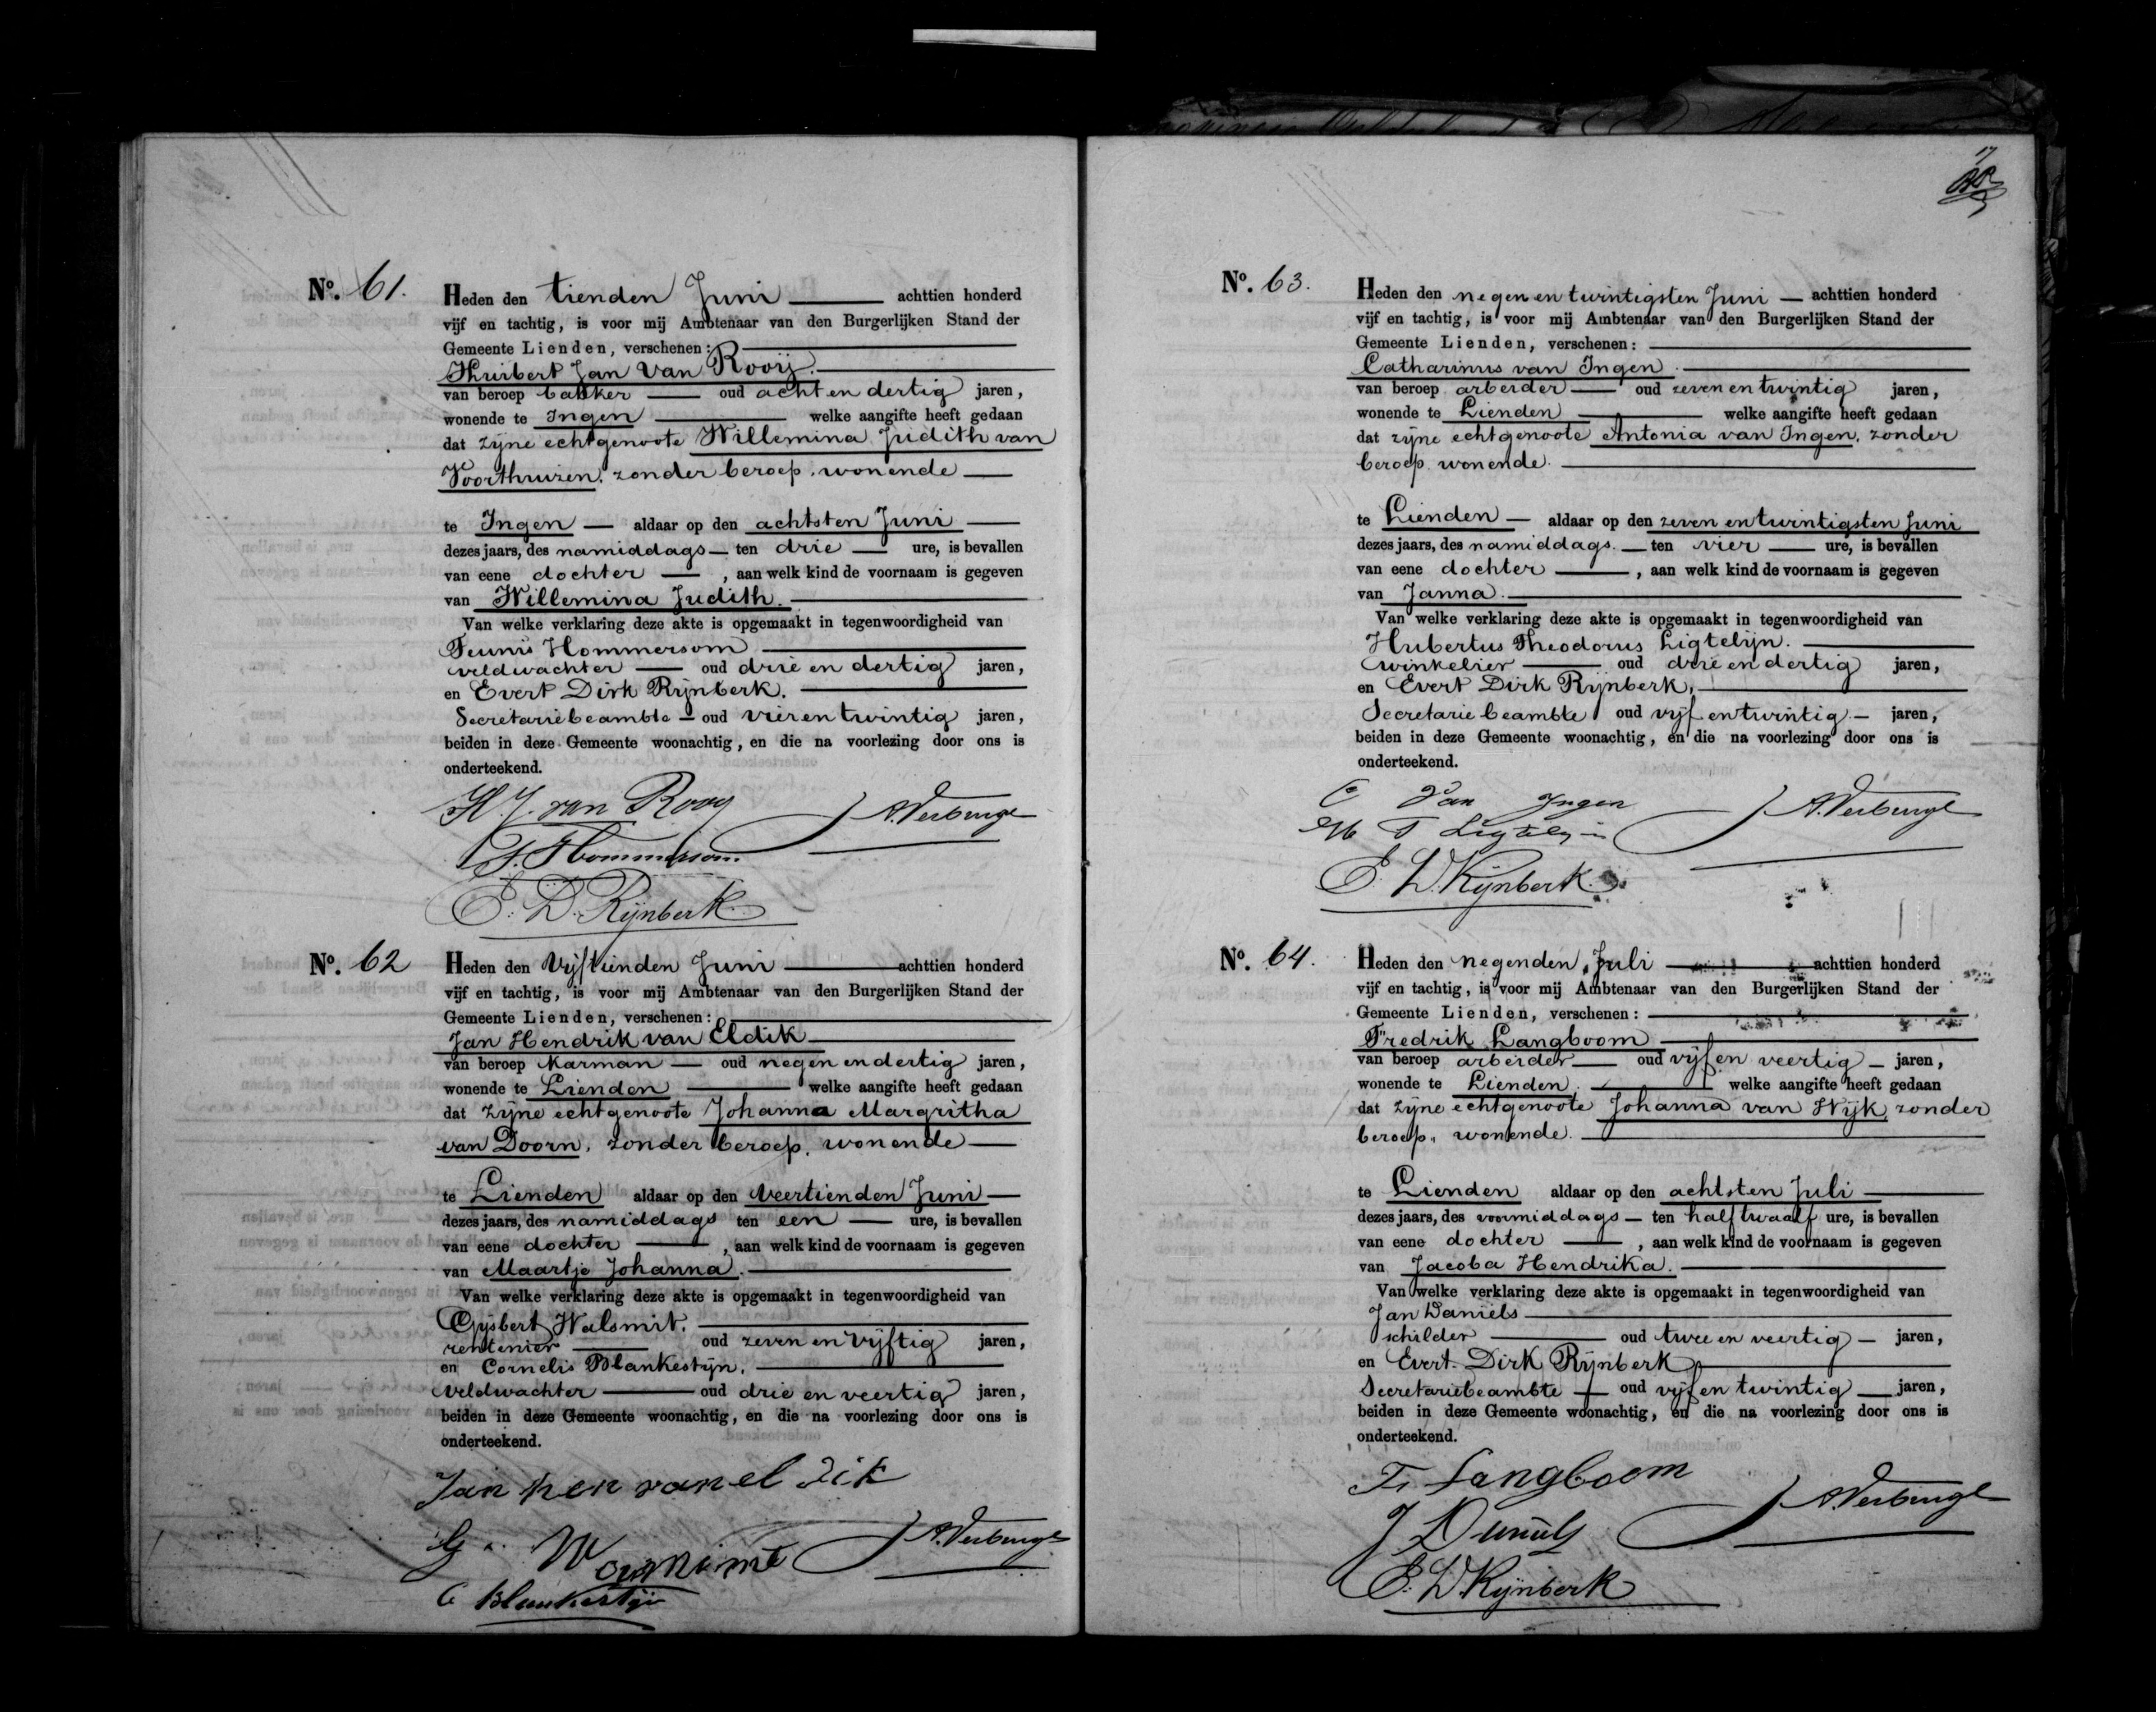 No. 61.
Heden den tienden Juni achttien honderd
vijf en tachtig, is voor mij Ambtenaar van den Burgerlijken Stand der
Gemeente Lienden, verschenen:
Huibert Jan van Rooij.
van beroep bakker oud acht en dertig jaren,
wonende te Ingen welke aangifte heeft gedaan
dat zijne echtgenoote Willemina Judith van
Voorthuizen, zonder beroep, wonende
te Ingen aldaar op den achtsten Juni
dezes jaars, des namiddags ten drie ure, is bevallen
van eene dochter, aan welk kind de voornaam is gegeven
van Willemina Judith.
Van welke verklaring deze akte is opgemaakt in tegenwoordigheid van
Teunis Hommersom
veldwachter oud drie en dertig jaren,
en Evert Dirk Rijnberk.
Secretariebeambte oud vier en twintig jaren,
beiden in deze Gemeente woonachtig, en die na voorlezing door ons is
onderteekend.
H. J. van Rooy
A. Verbrugh
T. Hommersom.
E. D. Rijnberk.
No. 62
Heden den Vijftienden Juni achttien honderd
vijf en tachtig, is voor mij Ambtenaar van den Burgerlijken Stand der
Gemeente Lienden, verschenen:
Jan Hendrik van Eldik
van beroep karman oud negen en dertig jaren,
wonende te Lienden welke aangifte heeft gedaan
dat zijne echtgenoote Johanna Margritha
van Doorn, zonder beroep, wonende
te Lienden aldaar op den veertienden Juni
dezes jaars, des namiddags ten een ure, is bevallen
van eene dochter, aan welk kind de voornaam is gegeven
van Maartje Johanna.
Van welke verklaring deze akte is opgemaakt in tegenwoordigheid van
Gijsbert Walsmit.
rentenier oud zeven en vijftig jaren,
en Cornelis Blankestijn.
veldwachter oud drie en veertig jaren,
beiden in deze Gemeente woonachtig, en die na voorlezing door ons is
onderteekend.
Jan hen van el dik
G.
A. Verbrugh
C Blankestijn
No. 63.
Heden den negen en twintigsten Juni achttien honderd
vijf en tachtig, is voor mij Ambtenaar van den Burgerlijken Stand der
Gemeente Lienden, verschenen:
Catharinus van Ingen.
van beroep arbeider oud zeven en twintig jaren,
wonende te Lienden welke aangifte heeft gedaan
dat zijne echtgenoote Antonia van Ingen, zonder
beroep, wonende.
te Lienden aldaar op den zeven en twintigsten Juni
dezes jaars, des namiddags. ten vier ure, is bevallen
van eene dochter, aan welk kind de voornaam is gegeven
van Janna.
Van welke verklaring deze akte is opgemaakt in tegenwoordigheid van
Hubertus Theodorus Ligtelijn.
winkelier oud drie en dertig jaren,
en Evert Dirk Rijnberk,
Secretariebeambte oud vijf en twintig jaren,
beiden in deze Gemeente woonachtig, en die na voorlezing door ons is
onderteekend.
C van Ingen
A. Verbrugh
H T Ligtelijn
E. D. Rijnberk.
No. 64.
Heden den negenden Juli achttien honderd
vijf en tachtig, is voor mij Ambtenaar van den Burgerlijken Stand der
Gemeente Lienden, verschenen:
Fredrik Langboom
van beroep arbeider oud vijf en veertig jaren,
wonende te Lienden. welke aangifte heeft gedaan
dat zijne echtgenoote Johanna van Wijk, zonder
beroep, wonende.
te Lienden aldaar op den achtsten Juli
dezes jaars, des voormiddags ten half twaalf ure, is bevallen
van eene dochter, aan welk kind de voornaam is gegeven
van Jacoba Hendrika.
Van welke verklaring deze akte is opgemaakt in tegenwoordigheid van
Jan Daniels
schilder oud twee en veertig jaren,
en Evert Dirk Rijnberk
Secretariebeambte oud vijf en twintig jaren,
beiden in deze Gemeente woonachtig, en die na voorlezing door ons is
onderteekend.
Fr Langboom
A. Verbrugh
J Daniels
E. D. Rijnberk